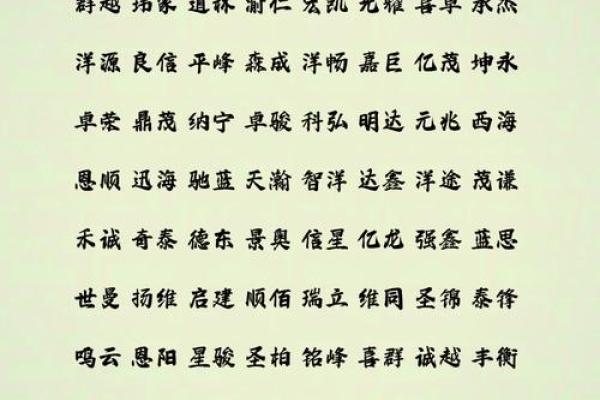 群越 玮家 道林 渝仁 宏凯 光耀 喜卓 永杰
洋源 良信 平峰 森成 洋畅 嘉巨 亿茂 坤永
卓荣 鼎茂 纳宁 卓骏 科弘 明达 元兆 西海
恩顺 迅海 驰蓝 天瀚 智洋 达鑫 洋途 茂谦
禾诚 奇泰 德东 景奥 信星 亿龙 强鑫 蓝思
世曼 扬维 启建 顺佰 瑞立 维同 圣锦 泰锋
鸣云 恩阳 星骏 圣柏 铭峰 喜群 诚越 丰衡